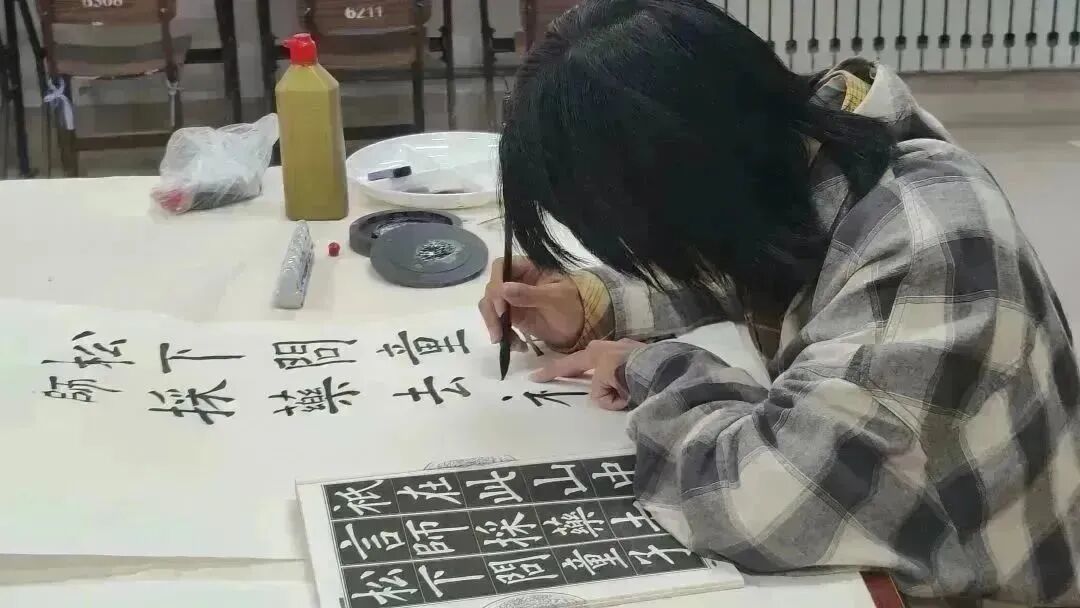 6308
6211
松下問童
師採藥去
祇在此山中
言師採藥去
松下問童子